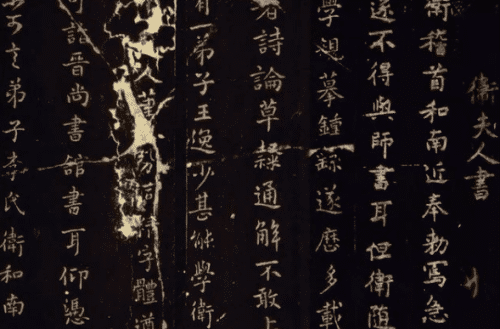 衛夫人書
衛稽首和南近奉勅寫急
遂不得與師書耳但衛隨
學規摹鍾繇遂歷多載
著詩論草隸通解不敢上
有一弟子王逸少甚能學衛
人字體遒
可詣晉尚書館書耳仰憑
不可言弟子李氏衛和南